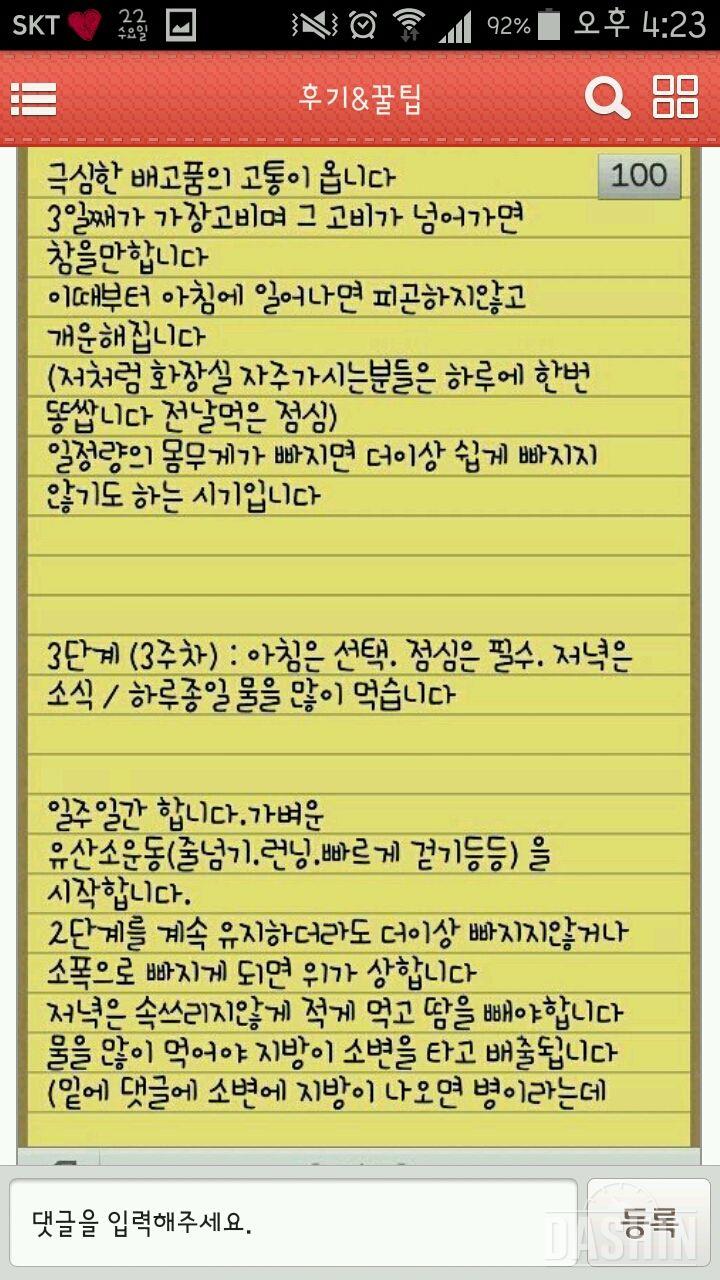 SKT 22 수요일 92% 오후 4:23
후기&꿀팁
100
극심한 배고품의 고통이 옵니다
3일째가 가장고비며 그 고비가 넘어가면
참을만합니다
이때부터 아침에 일어나면 피곤하지않고
개운해집니다
(저처럼 화장실 자주가시는분들은 하루에 한번
똥쌉니다 전날먹은 점심)
일정량의 몸무게가 빠지면 더이상 쉽게 빠지지
않기도 하는 시기입니다
3단계 (3주차) : 아침은 선택. 점심은 필수. 저녁은
소식 / 하루종일 물을 많이 먹습니다
일주일간 합니다.가벼운
유산소운동(줄넘기.런닝.빠르게 걷기등등) 을
시작합니다.
2단계를 계속 유지하더라도 더이상 빠지지않거나
소폭으로 빠지게 되면 위가 상합니다
저녁은 속쓰리지않게 적게 먹고 땀을 빼야합니다
물을 많이 먹어야 지방이 소변을 타고 배출됩니다
(밑에 댓글에 소변에 지방이 나오면 병이라는데
댓글을 입력해주세요.
등록
DASHIN